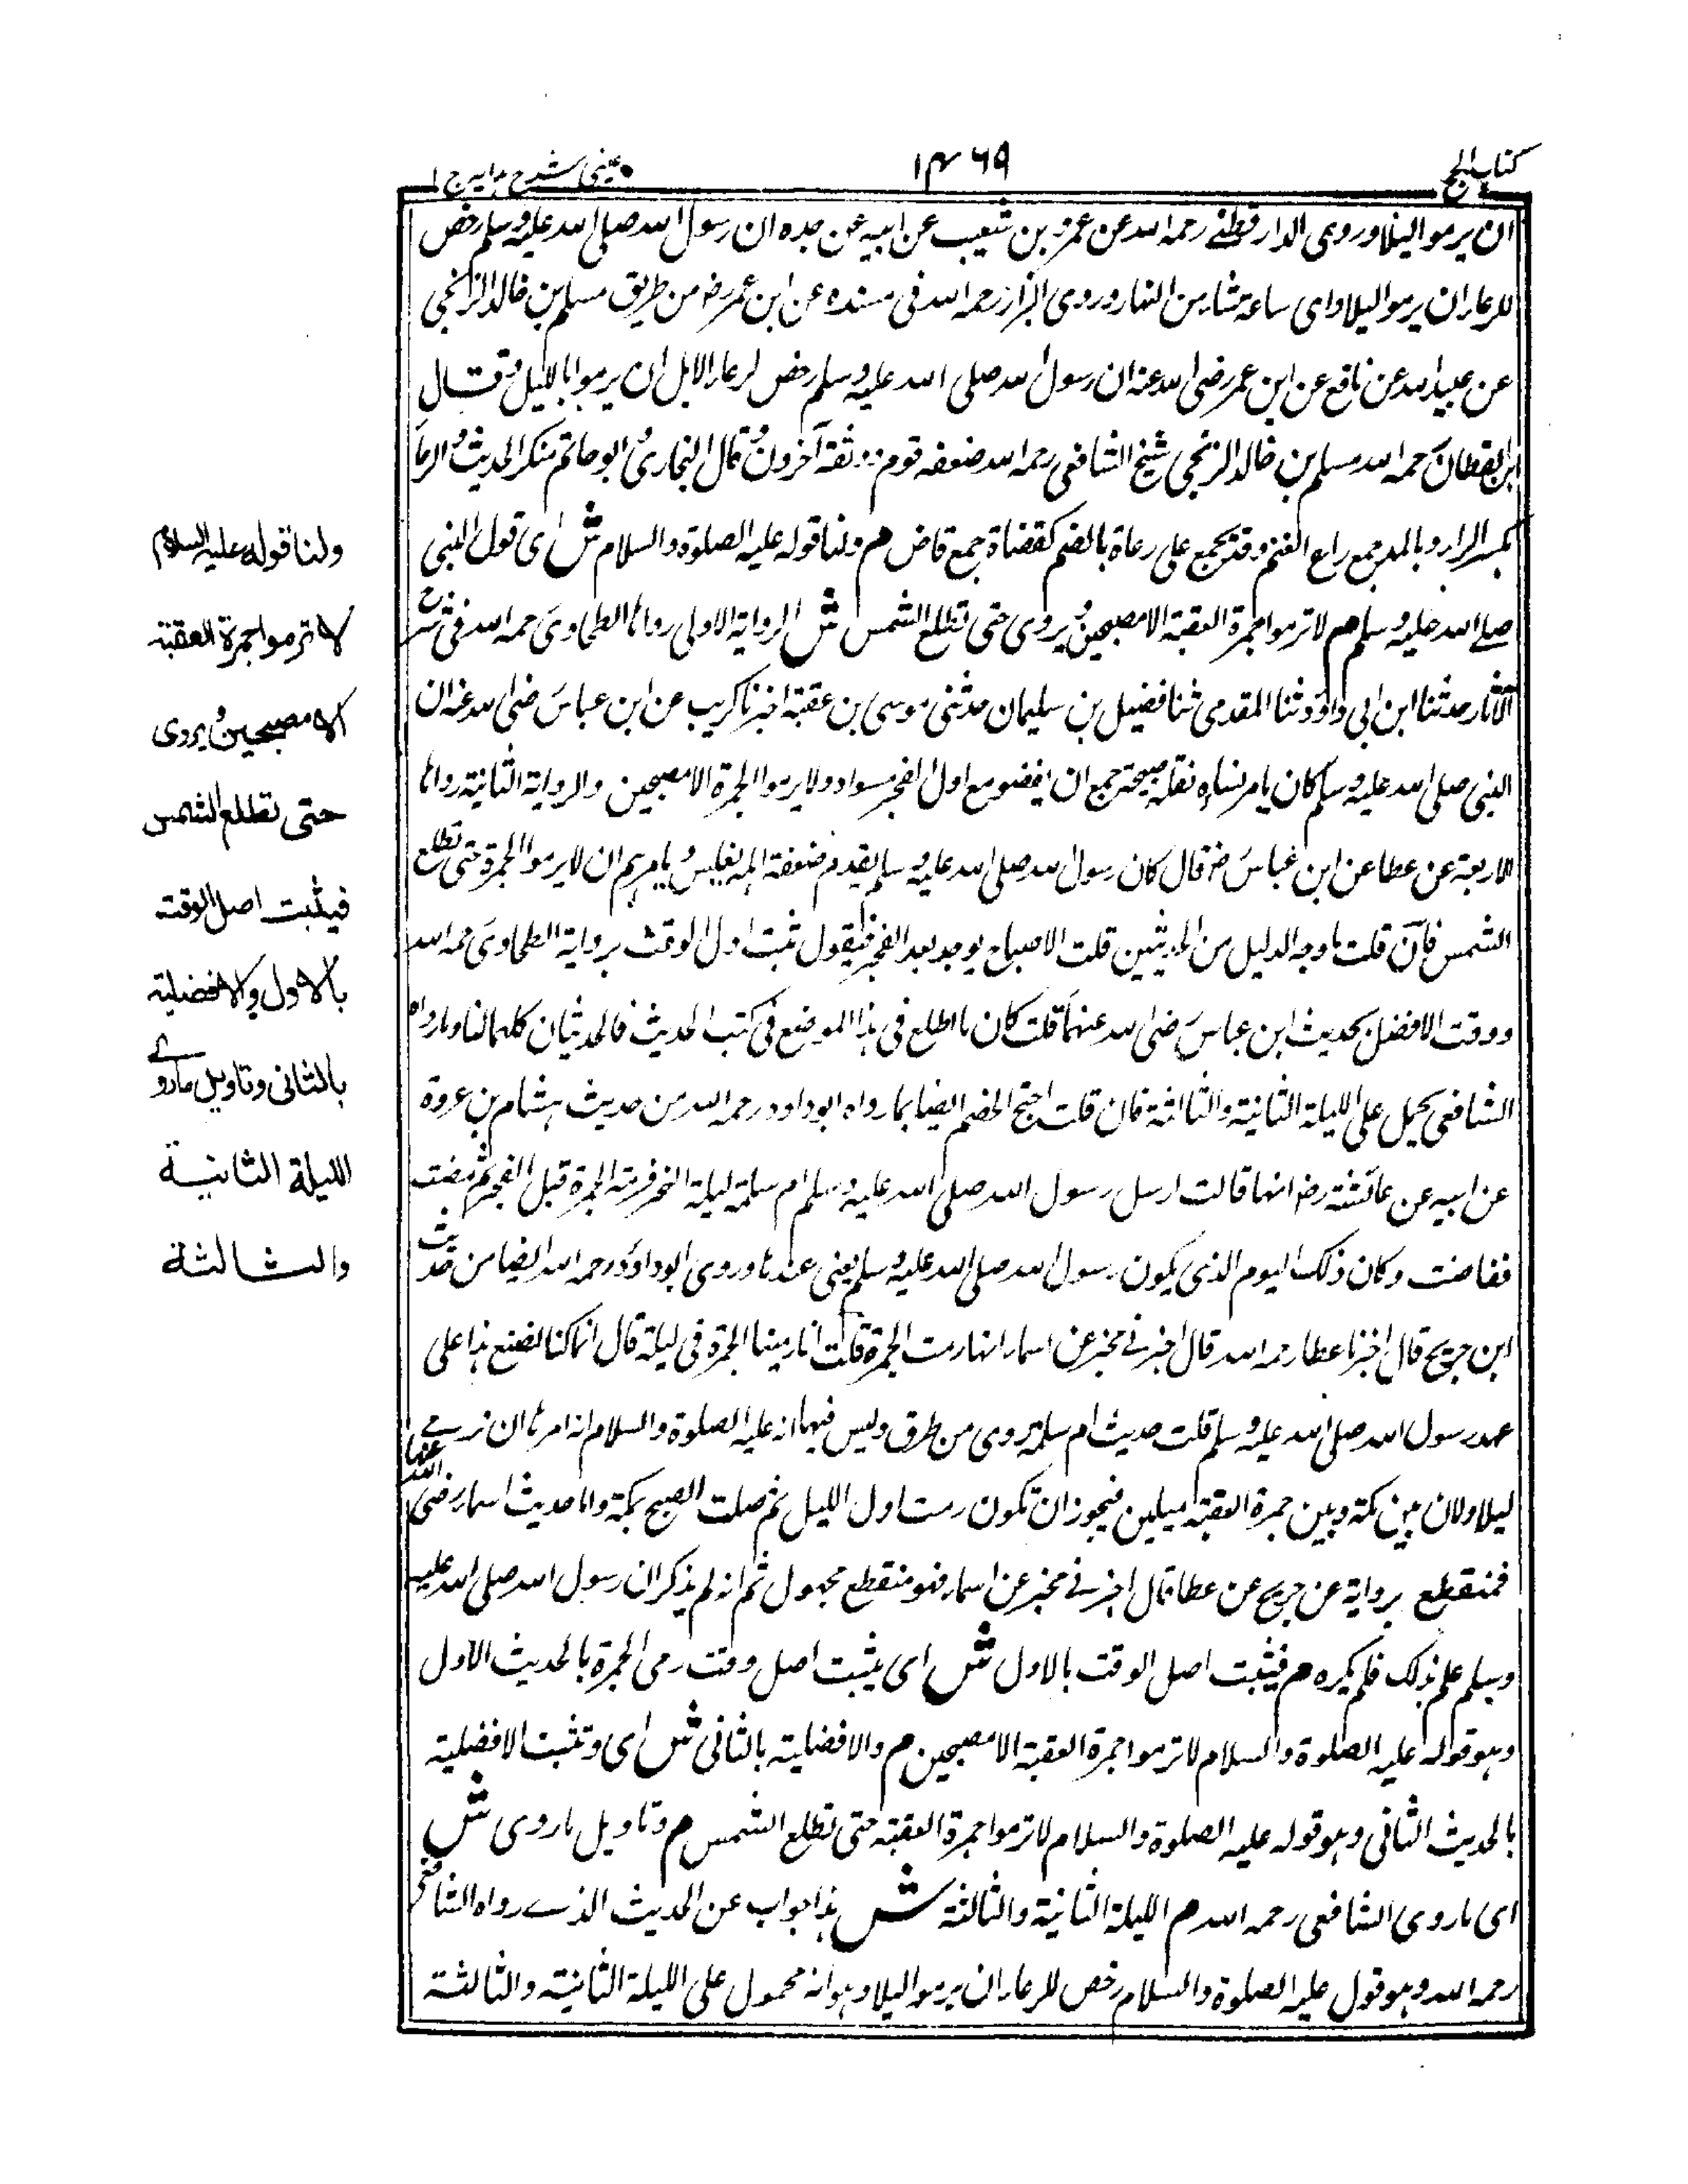 كتاب الحج
١٤٦٩
عينى شرح هدايه ج ١
ان يرموا ليلا وروى الدارقطنے رحمه الله عن عمرو بن شعيب عن ابيه عن جده ان رسول الله صلى الله عليه وسلم رخص
للرعاء ان يرموا ليلا واى ساعة شاؤا من النهار وروى البزار رحمه الله فى مسنده عن ابن عمر رض من طريق مسلم بن خالد الزنجى
عن عبيد الله عن نافع عن ابن عمر رضى الله عنه ان رسول الله صلى الله عليه وسلم رخص لرعاء الابل ان يرموا بالليل وقال
ابن القطان رحمه الله مسلم بن خالد الزنجى شيخ الشافعى رحمه الله ضعفه قوم ووثقه آخرون قال البخارى وابو حاتم منكر الحديث والرعاء
بكسر الراء وبالمد جمع راع الغنم وقد يجمع على رعاة بالضم كقضاة جمع قاض م ولنا قوله عليه الصلوة والسلام ش اى قول النبى
صلے الله عليه وسلم م لا ترموا جمرة العقبة الا مصبحين ويروى حتى تطلع الشمس ش الرواية الاولى رواها الطحاوى رحمه الله فى شرح
الآثار حدثنا ابن ابى داؤد ثنا المقدمى ثنا فضيل بن سليمان حدثنى موسى بن عقبة اخبرنا كريب عن ابن عباس رضى الله عنه ان
النبى صلى الله عليه وسلم كان يامر نساءه وثقله صبيحة جمع ان يفيضوا مع اول الفجر بسواد ولا يرموا الجمرة الا مصبحين والرواية الثانية رواها
الاربعة عن عطا عن ابن عباس رض قال كان رسول الله صلى الله عليه وسلم يقدم ضعفة اهله بغلس ويامرهم ان لا يرموا الجمرة حتى تطلع
الشمس فان قلت ما وجه الدليل من الحديثين قلت الاصباح يوجد بعد الفجر فيقول ثبت اول الوقت برواية الطحاوى رحمه الله
ووقت الافضل بحديث ابن عباس رضى الله عنهما قلت كان ما اطلع فى هذا الموضع فى كتب الحديث فالحديثان كلهما لنا وما رواه
الشافعى يحمل على الليلة الثانية والثالثة فان قلت احتج الخصم ايضا بما رواه ابو داود رحمه الله من حديث هشام بن عروة
عن ابيه عن عائشة رض انها قالت ارسل رسول الله صلى الله عليه وسلم ام سلمة ليلة النحر فرمت الجمرة قبل الفجر ثم مضت
ففاضت وكان ذلك اليوم الذى يكون رسول الله صلى الله عليه وسلم يعنى عندها وروى ابو داؤد رحمه الله ايضا من حديث
ابن جريج قال اخبرنا عطاء رحمه الله قال اخبرنے مخبر عن اسماء انها رمت الجمرة قلت انا رمينا الجمرة فى ليلة قال انا كنا نصنع هذا على
عهد رسول الله صلى الله عليه وسلم قلت حديث ام سلمة روى من طرق وليس فيها انه عليه الصلوة والسلام انه امرها ان ترمے
ليلا ولان بين مكة وبين جمرة العقبة ميلين فيجوز ان تكون رمت اول الليل ثم صلت الصبح بمكة واما حديث اسماء رضى الله عنها
فمنقطع برواية عن جريج عن عطا قال اخبرنے مخبر عن اسماء فهو منقطع مجهول ثم انه لم يذكر ان رسول الله صلى الله عليه
وسلم علم بذلك فلم يكره م فيثبت اصل الوقت بالاول ش اى يثبت اصل وقت رمى الجمرة بالحديث الاول
وهو قوله عليه الصلوة والسلام لا ترموا جمرة العقبة الا مصبحين م والافضلية بالثانى ش اى وتثبت الافضلية
بالحديث الثانى وهو قوله عليه الصلوة والسلام لا ترموا جمرة العقبة حتى تطلع الشمس م وتاويل ما روى ش
اى ما روى الشافعى رحمه الله م الليلة الثانية والثالثة ش هذا جواب عن الحديث الذے رواه الشافعى
رحمه الله وهو قول عليه الصلوة والسلام رخص للرعاء ان يرموا ليلا وهو انه محمول على الليلة الثانية والثالثة
ولنا قوله عليه السلام
لا ترموا جمرة العقبة
الا مصبحين ويروى
حتى تطلع الشمس
فيثبت اصل الوقت
بالاول والافضلية
بالثانى وتاويل ما روے
الليلة الثانية
والثالثة